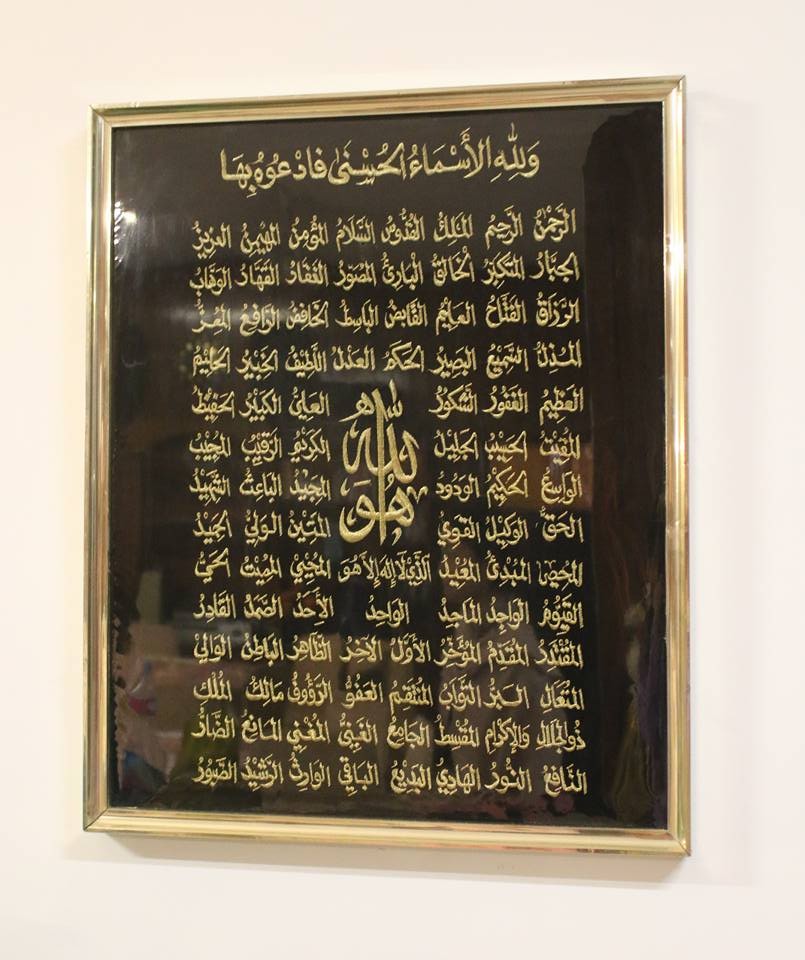 وَلِلّٰهِ الأَسْمَاءُ الحُسْنٰى فَادْعُوهُ بِهَا
الرَّحْمٰنُ الرَّحِيمُ المَلِكُ القُدُّوسُ السَّلَامُ المُؤْمِنُ المُهَيْمِنُ العَزِيزُ
الجَبَّارُ المُتَكَبِّرُ الخَالِقُ البَارِئُ المُصَوِّرُ الغَفَّارُ القَهَّارُ الوَهَّابُ
الرَّزَّاقُ الفَتَّاحُ العَلِيمُ القَابِضُ البَاسِطُ الخَافِضُ الرَّافِعُ المُعِزُّ
المُذِلُّ السَّمِيعُ البَصِيرُ الحَكَمُ العَدْلُ اللَّطِيفُ الخَبِيرُ الحَلِيمُ
العَظِيمُ الغَفُورُ الشَّكُورُ العَلِيُّ الكَبِيرُ الحَفِيظُ
المُقِيتُ الحَسِيبُ الجَلِيلُ الكَرِيمُ الرَّقِيبُ المُجِيبُ
الله
الوَاسِعُ الحَكِيمُ الوَدُودُ المَجِيدُ البَاعِثُ الشَّهِيدُ
هُوَ
الحَقُّ الوَكِيلُ القَوِيُّ المَتِينُ الوَلِيُّ الحَمِيدُ
المُحْصِي المُبْدِئُ المُعِيدُ الَّذِي لَا إِلٰهَ إِلَّا هُوَ المُحْيِي المُمِيتُ الحَيُّ
القَيُّومُ الوَاجِدُ المَاجِدُ الوَاحِدُ الأَحَدُ الصَّمَدُ القَادِرُ
المُقْتَدِرُ المُقَدِّمُ المُؤَخِّرُ الأَوَّلُ الآخِرُ الظَّاهِرُ البَاطِنُ الوَالِيُ
المُتَعَالِ البَرُّ التَّوَّابُ المُنْتَقِمُ العَفُوُّ الرَّؤُوفُ مَالِكُ المُلْكِ
ذُو الجَلَالِ وَالإِكْرَامِ المُقْسِطُ الجَامِعُ الغَنِيُّ المُغْنِي المَانِعُ الضَّارُّ
النَّافِعُ النُّورُ الهَادِيُ البَدِيعُ البَاقِي الوَارِثُ الرَّشِيدُ الصَّبُورُ